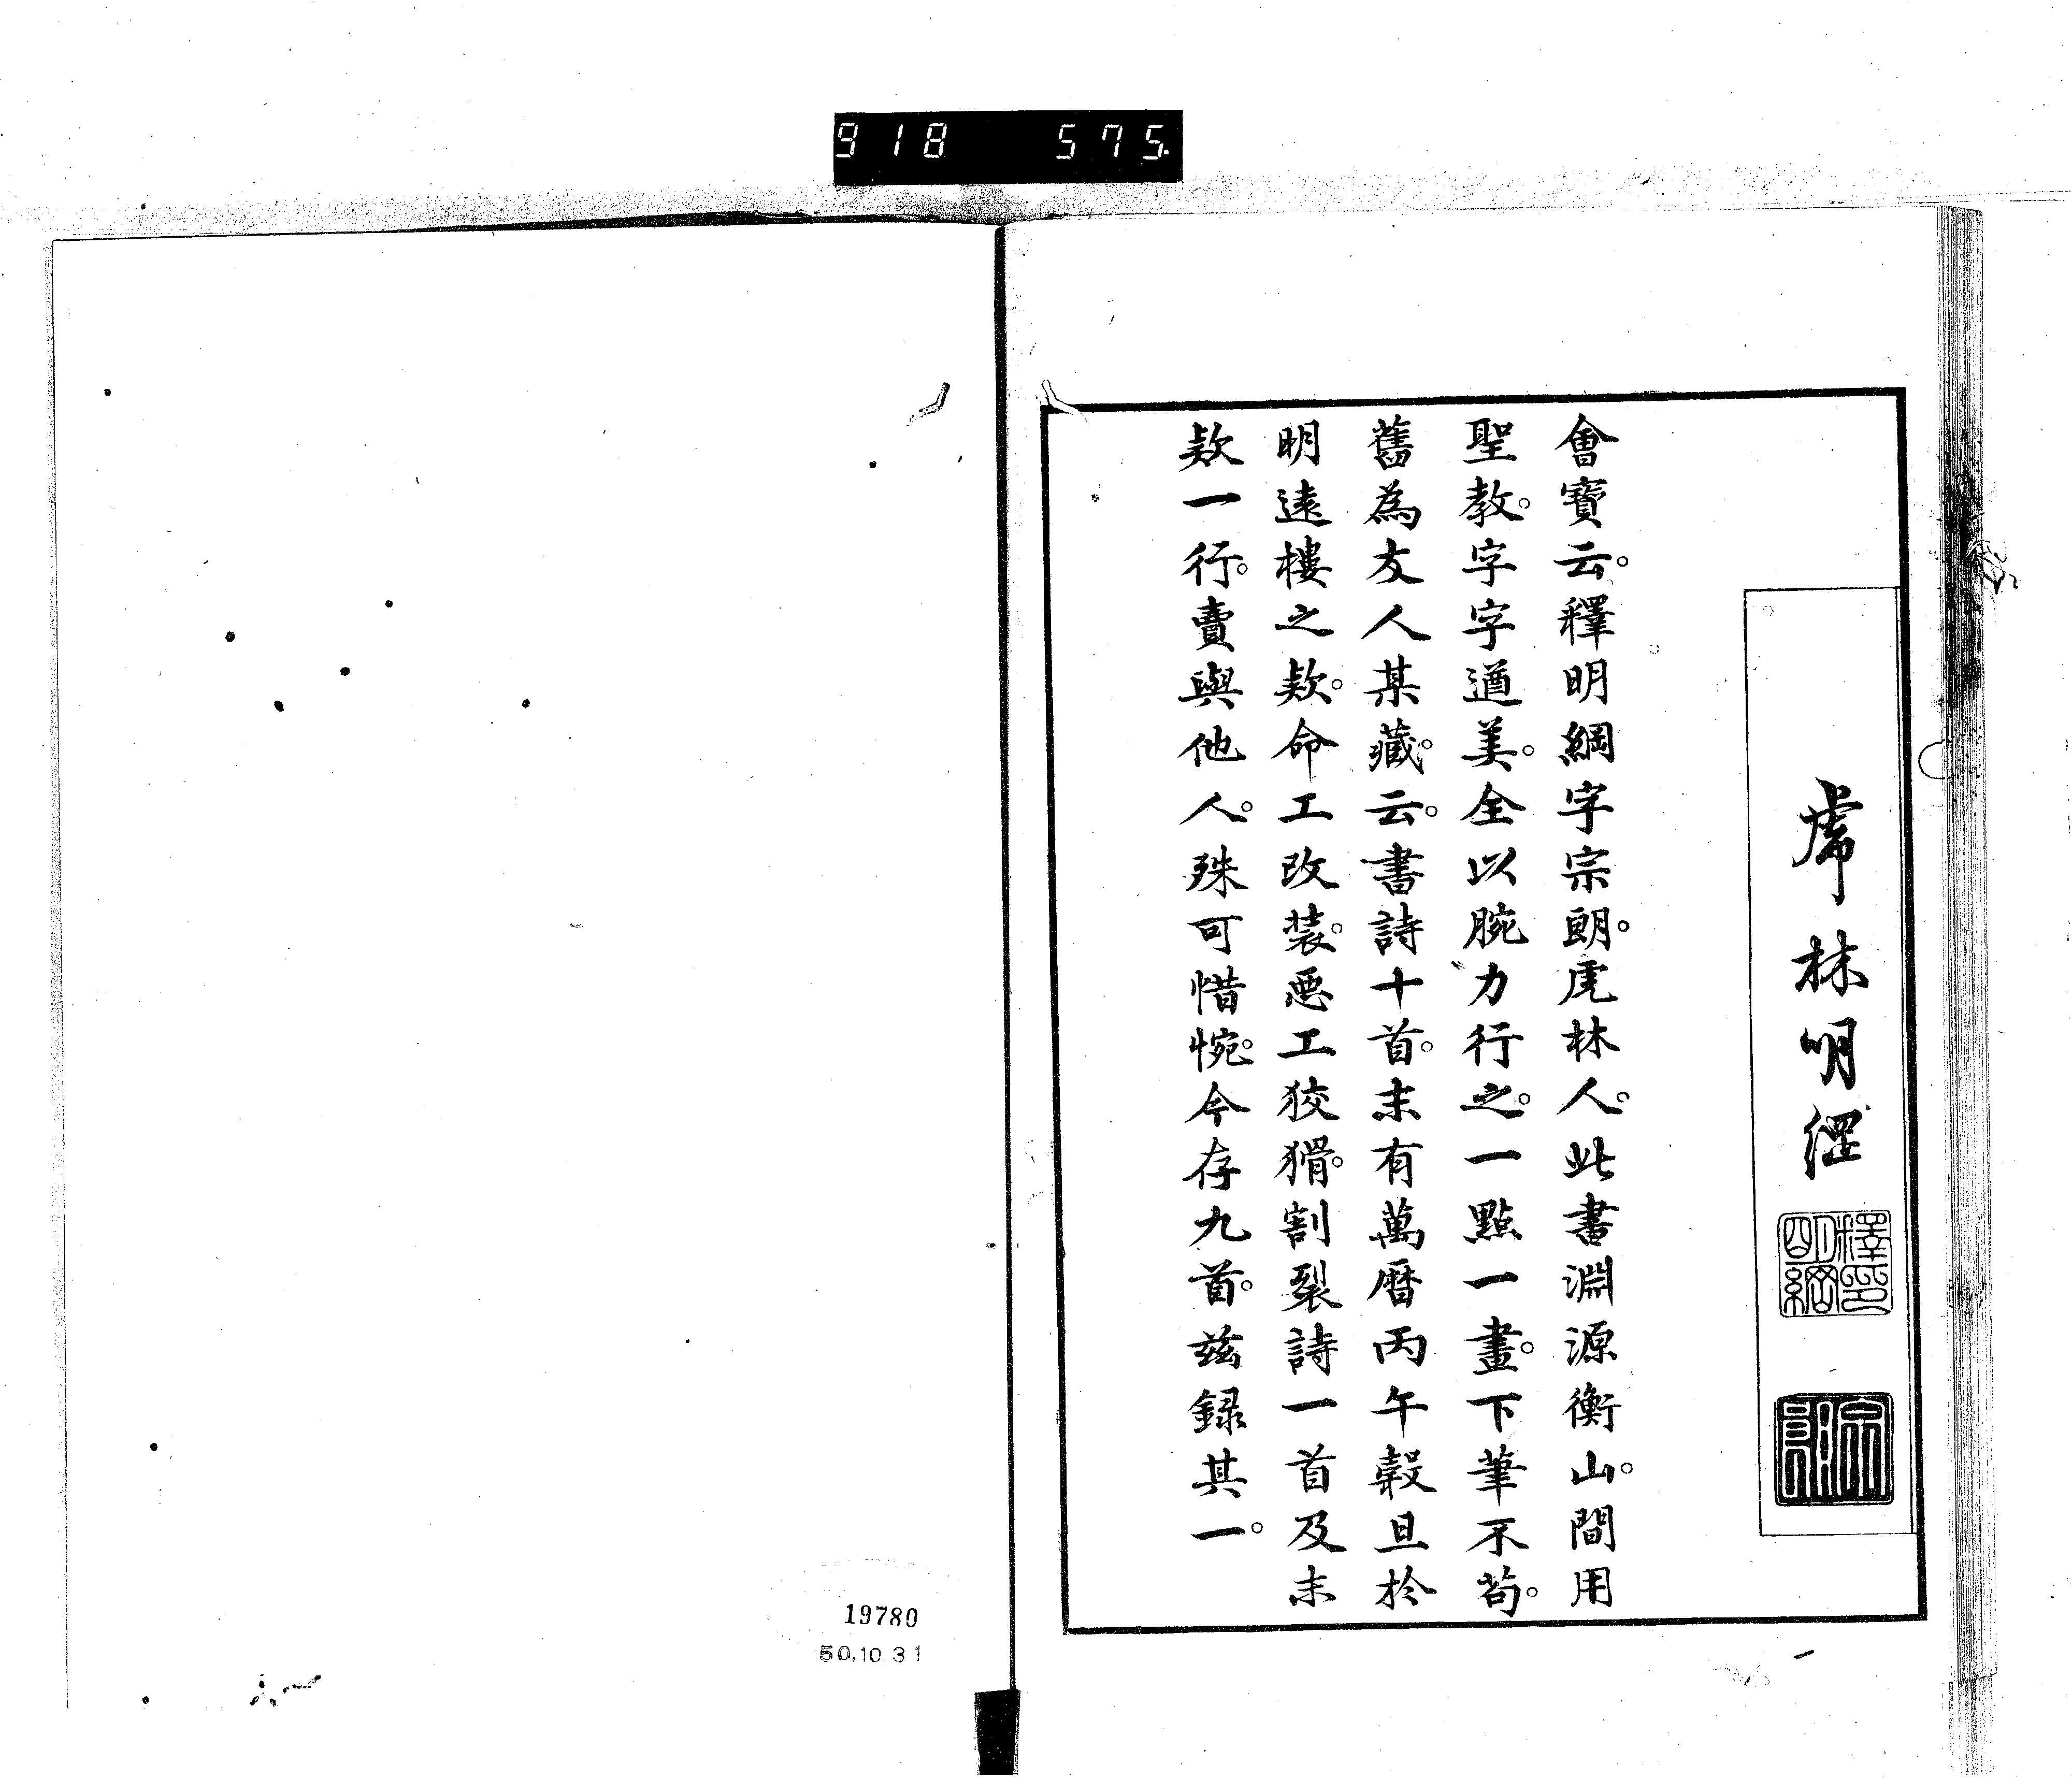 918 575.
虎林明綱
釋明綱印
宗朗
會寶云。釋明綱字宗朗。虎林人。此書淵源衡山。間用
聖教。字字遒美。全以腕力行之。一點一畫。下筆不苟。
舊為友人某藏。云。書詩十首。末有萬曆丙午穀旦於
明遠樓之欵。命工改装。惡工狡猾。割裂詩一首及末
欵一行。賣與他人。殊可惜惋。今存九首。茲録其一。
19780
50.10.31